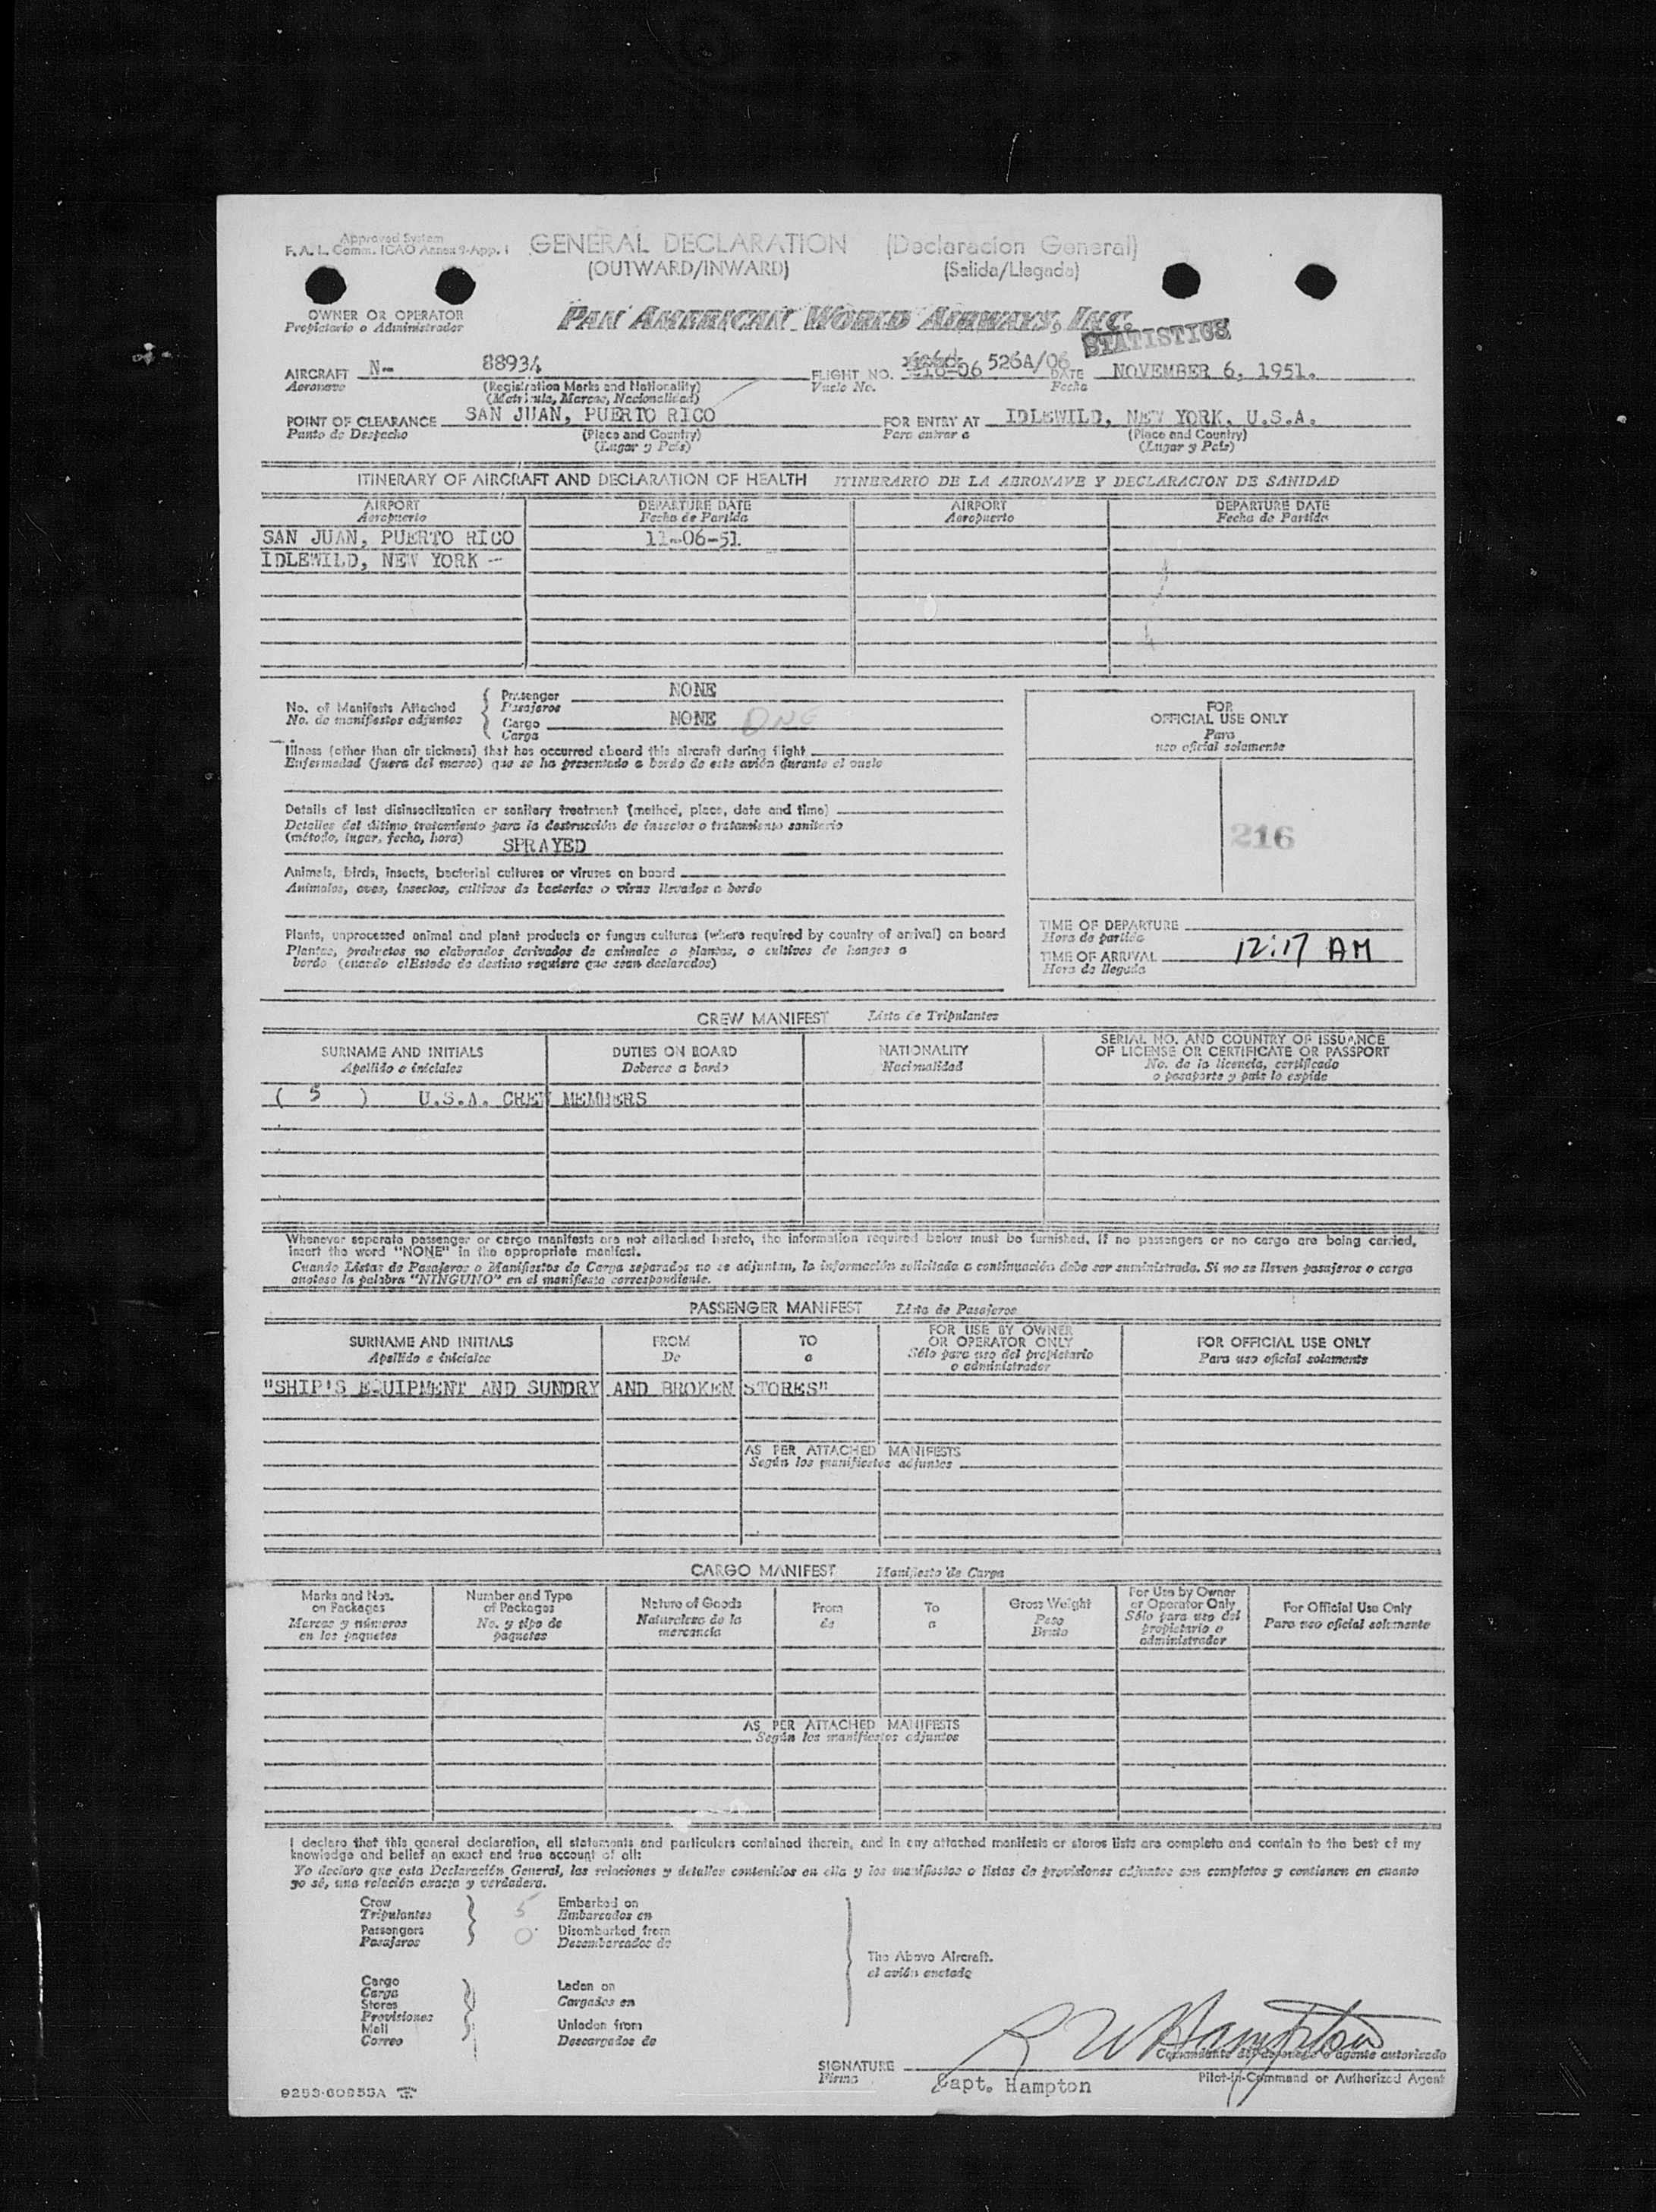 Approved System
F. A. L. Comm. ICAO Annex 9-App. 1
GENERAL DECLARATION (Declaracion General)
(OUTWARD/INWARD) (Salida/Llegada)
OWNER OR OPERATOR
Propietario o Administrador
PAN AMERICAN WORLD AIRWAYS, INC.
STATISTICS
AIRCRAFT N- 88934 FLIGHT NO. 526A/06 DATE NOVEMBER 6, 1951.
Aeronave (Registration Marks and Nationality) Vuelo No. Fecha
(Matrícula, Marcas, Nacionalidad)
POINT OF CLEARANCE SAN JUAN, PUERTO RICO FOR ENTRY AT IDLEWILD, NEW YORK, U.S.A.
Punto de Despacho (Place and Country) Para entrar a (Place and Country)
(Lugar y País) (Lugar y País)
ITINERARY OF AIRCRAFT AND DECLARATION OF HEALTH ITINERARIO DE LA AERONAVE Y DECLARACION DE SANIDAD
AIRPORT DEPARTURE DATE AIRPORT DEPARTURE DATE
Aeropuerto Fecha de Partida Aeropuerto Fecha de Partida
SAN JUAN, PUERTO RICO 11-06-51
IDLEWILD, NEW YORK -
No. of Manifests Attached
No. de manifiestos adjuntos
Passenger NONE
Pasajeros
Cargo NONE ONE
Carga
Illness (other than air sickness) that has occurred aboard this aircraft during flight
Enfermedad (fuera del mareo) que se ha presentado a bordo de este avión durante el vuelo
Details of last disinsectization or sanitary treatment (method, place, date and time)
Detalles del último tratamiento para la destrucción de insectos o tratamiento sanitario
(método, lugar, fecha, hora) SPRAYED
Animals, birds, insects, bacterial cultures or viruses on board
Animales, aves, insectos, cultivos de bacterias o virus llevados a bordo
Plants, unprocessed animal and plant products or fungus cultures (where required by country of arrival) on board
Plantas, productos no elaborados derivados de animales o plantas, o cultivos de hongos a
bordo (cuando el Estado de destino requiere que sean declarados)
FOR
OFFICIAL USE ONLY
Para
uso oficial solamente
216
TIME OF DEPARTURE
Hora de partida
TIME OF ARRIVAL 12:17 AM
Hora de llegada
CREW MANIFEST Lista de Tripulantes
SURNAME AND INITIALS DUTIES ON BOARD NATIONALITY SERIAL NO. AND COUNTRY OF ISSUANCE
OF LICENSE OR CERTIFICATE OR PASSPORT
Apellido e iniciales Deberes a bordo Nacionalidad No. de la licencia, certificado
o pasaporte y país lo expide
( 5 ) U.S.A. CREW MEMBERS
Whenever separate passenger or cargo manifests are not attached hereto, the information required below must be furnished. If no passengers or no cargo are being carried,
insert the word "NONE" in the appropriate manifest.
Cuando Listas de Pasajeros o Manifiestos de Carga separados no se adjuntan, la información solicitada a continuación debe ser suministrada. Si no se llevan pasajeros o carga
anótese la palabra "NINGUNO" en el manifiesto correspondiente.
PASSENGER MANIFEST Lista de Pasajeros
SURNAME AND INITIALS FROM TO FOR USE BY OWNER
OR OPERATOR ONLY FOR OFFICIAL USE ONLY
Apellido e iniciales De a Sólo para uso del propietario
o administrador Para uso oficial solamente
"SHIP'S EQUIPMENT AND SUNDRY AND BROKEN STORES"
AS PER ATTACHED MANIFESTS
Según los manifiestos adjuntos
CARGO MANIFEST Manifiesto de Carga
Marks and Nos.
on Packages
Marcas y números
en los paquetes
Number and Type
of Packages
No. y tipo de
paquetes
Nature of Goods
Naturaleza de la
mercancía
From
de
To
a
Gross Weight
Peso
Bruto
For Use by Owner
or Operator Only
Sólo para uso del
propietario o
administrador
For Official Use Only
Para uso oficial solamente
AS PER ATTACHED MANIFESTS
Según los manifiestos adjuntos
I declare that this general declaration, all statements and particulars contained therein, and in any attached manifests or stores lists are complete and contain to the best of my
knowledge and belief an exact and true account of all:
Yo declaro que esta Declaración General, las relaciones y detalles contenidos en ella y los manifiestos o listas de provisiones adjuntos son completos y contienen en cuanto
yo sé, una relación exacta y verdadera.
Crew 5 Embarked on
Tripulantes Embarcados en
Passengers 0 Disembarked from
Pasajeros Desembarcados de
The Above Aircraft.
el avión anotado
Cargo
Carga Laden on
Stores Cargados en
Provisiones
Mail Unladen from
Correo Descargados de
R W Hampton
Comandante de aeronave o agente autorizado
SIGNATURE
Firma Capt. Hampton Pilot-in-Command or Authorized Agent
9253-60955A